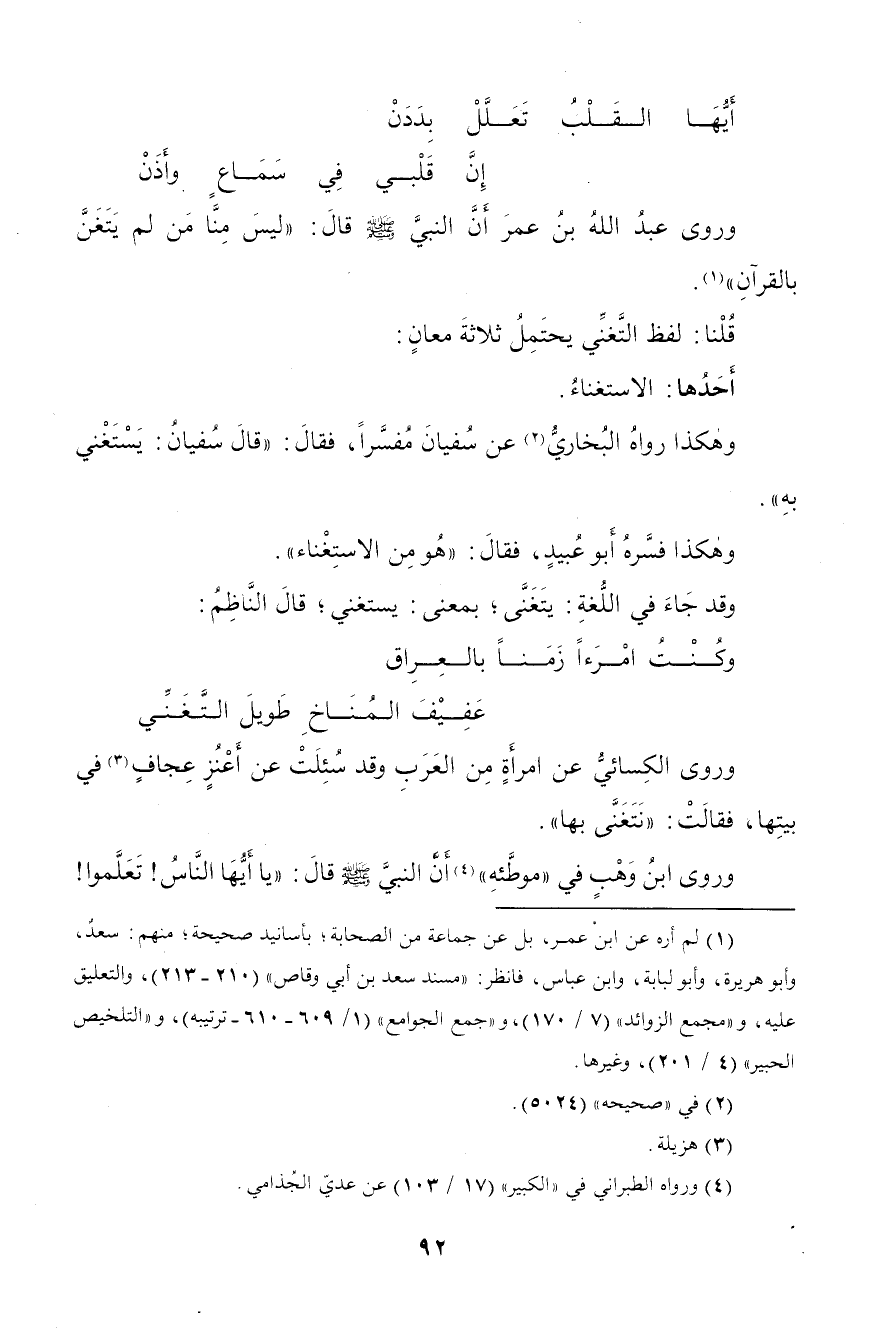 أَيُّهَا الـقَـلْبُ تَعَـلَّلْ بِدَدَنْ
إِنَّ قَلْبـي فِي سَمَـاعٍ وأَذَنْ
وروى عبدُ اللهُ بنُ عمرَ أَنَّ النبيَّ ﷺ قالَ: «ليسَ مِنَّا مَن لم يَتَغَنَّ
بالقرآنِ»(١).
قُلْنا: لفظ التَّغنِّي يحتَمِلُ ثلاثةَ معانٍ:
أَحَدُها: الاستغناءُ.
وهٰكذا رواهُ البُخاريُّ(٢) عن سُفيانَ مُفسَّراً، فقالَ: «قالَ سُفيانُ: يَسْتَغْني
بهِ».
وهٰكذا فسَّرهُ أَبو عُبيدٍ، فقالَ: «هُو مِن الاستِغْناء».
وقد جَاءَ في اللُّغةِ: يتَغَنَّى؛ بمعنى: يستغني؛ قالَ النَّاظِمُ:
وكُـنْـتُ امْـرَءاً زَمَـنـاً بالـعِـراق
عَفِـيْفَ الـمُنَـاخِ طَويلَ الـتَّـغَـنِّـي
وروى الكِسائيُّ عن امرأَةٍ مِن العَرَبِ وقد سُئِلَتْ عن أَعْنُزٍ عِجافٍ(٣) في
بيتِها، فقالَتْ: «نَتَغَنَّى بها».
وروى ابنُ وَهْبٍ في «موطَّئهِ»(٤) أَنَّ النبيَّ ﷺ قالَ: «يا أَيُّهَا النَّاسُ! تَعَلَّموا!
(١) لم أره عن ابن عمر، بل عن جماعة من الصحابة؛ بأسانيد صحيحة؛ منهم: سعدٌ،
وأبو هريرة، وأبو لبابة، وابن عباس، فانظر: «مسند سعد بن أبي وقاص» (٢١٠ - ٢١٣)، والتعليق
عليه، و «مجمع الزوائد» (٧ / ١٧٠)، و «جمع الجوامع» (١/ ٦٠٩ - ٦١٠ - ترتيبه)، و «التلخيص
الحبير» (٤ / ٢٠١)، وغيرها.
(٢) في «صحيحه» (٥٠٢٤).
(٣) هزيلة.
(٤) ورواه الطبراني في «الكبير» (١٧ / ١٠٣) عن عديّ الجُذامي.
٩٢